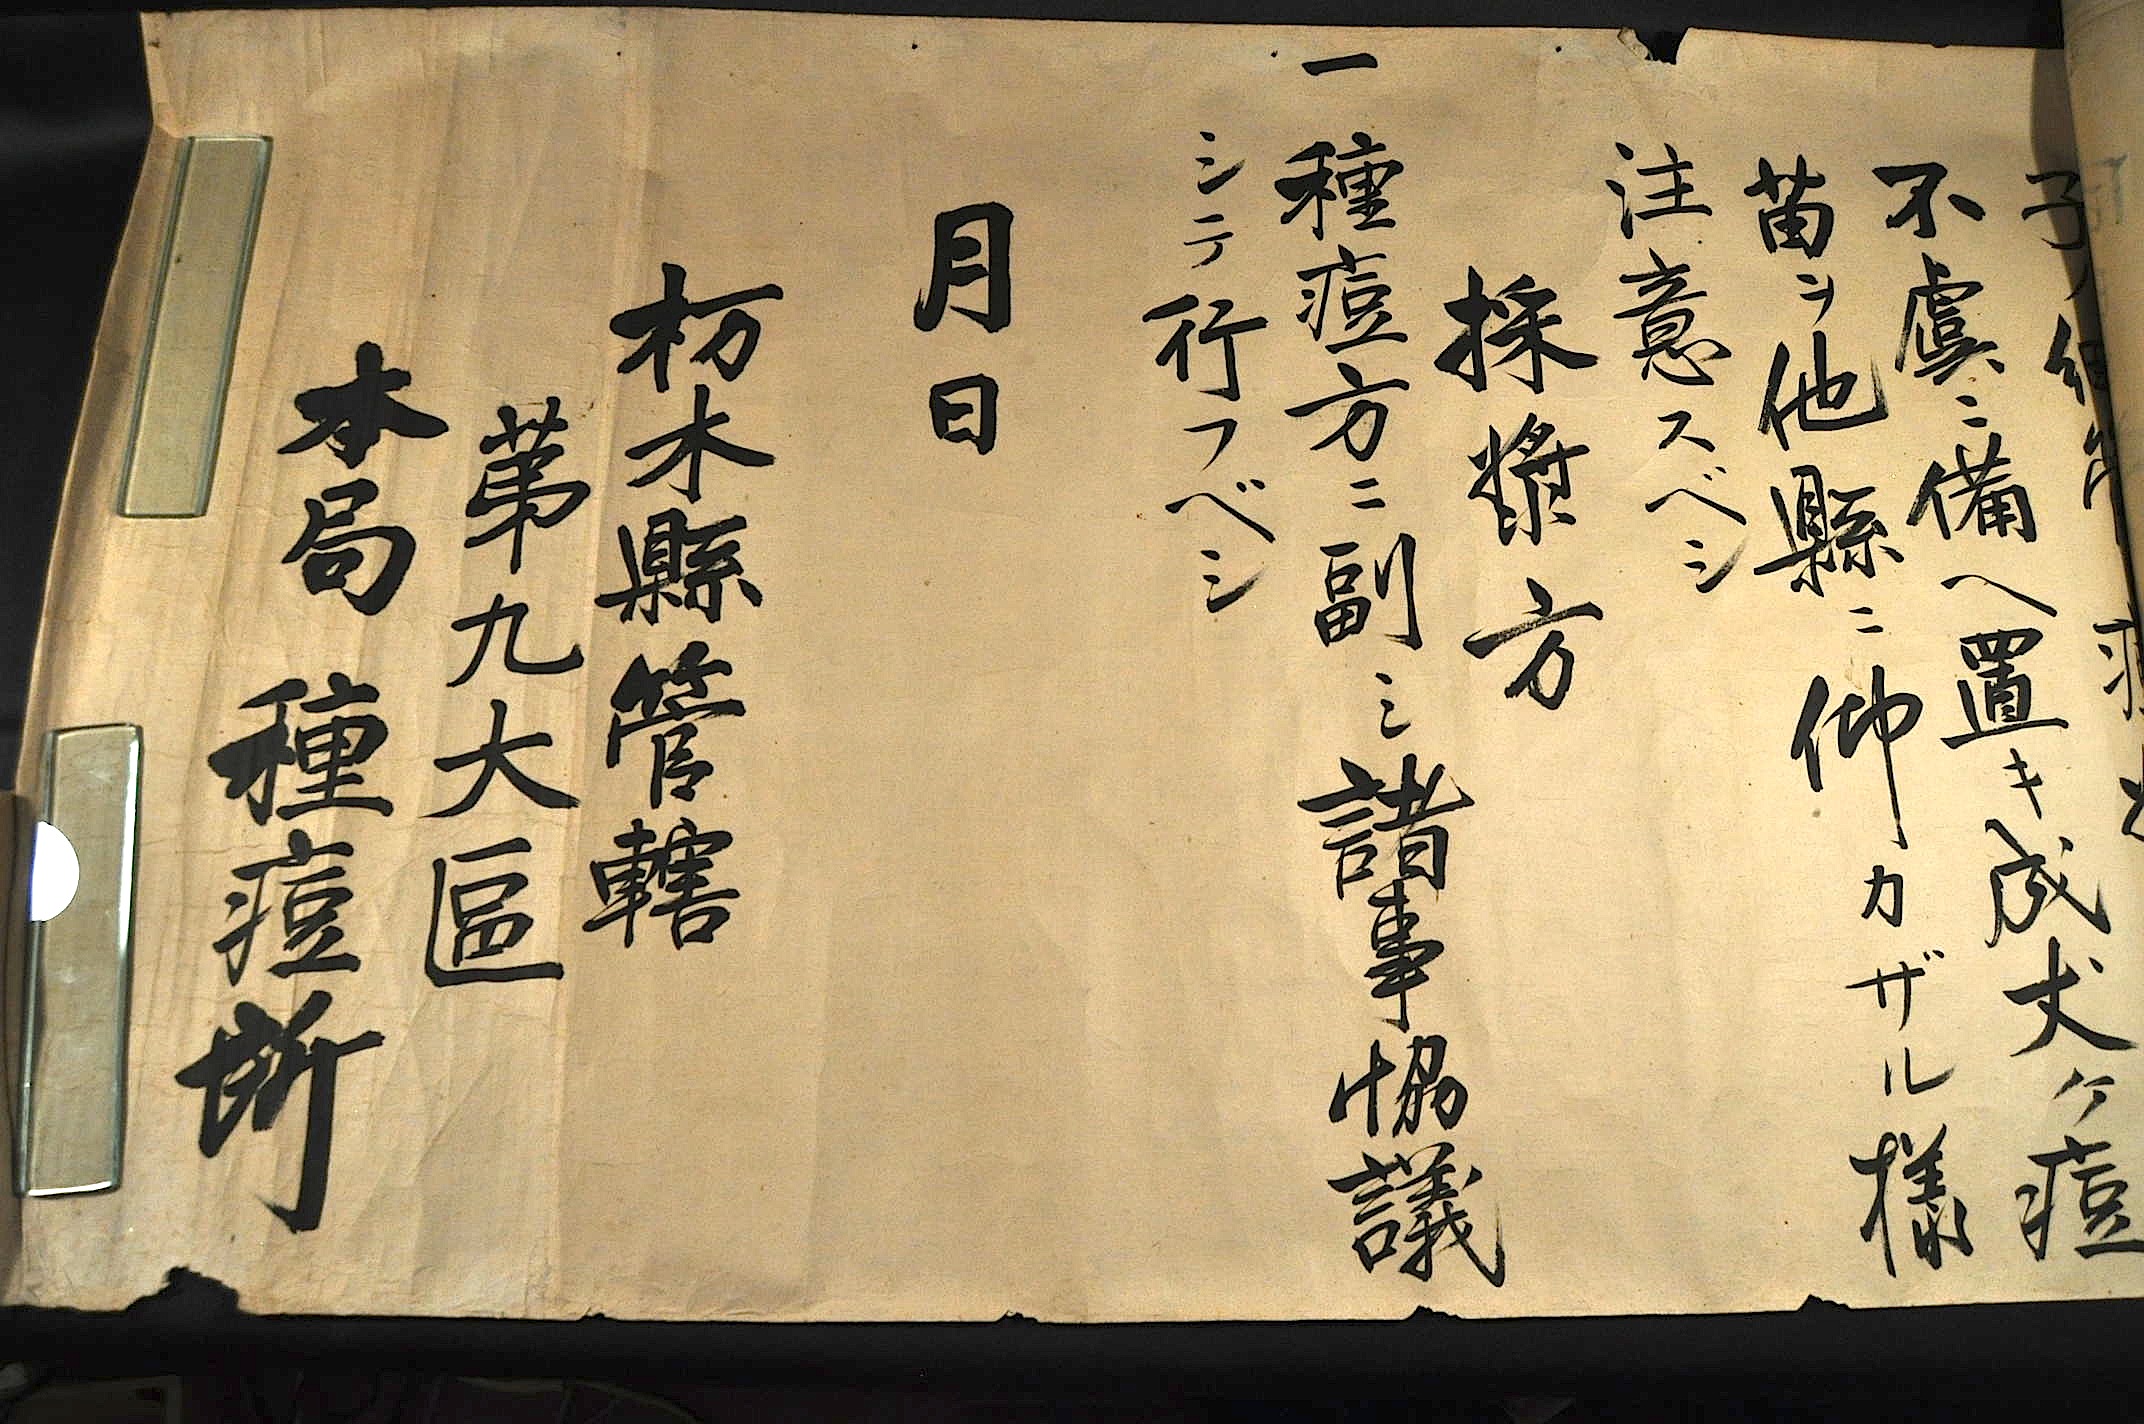 不虞ニ備ヘ置キ成丈ケ痘
苗ヲ他縣ニ仰カザル様
注意スベシ
採漿方
一種痘方ニ副シ諸事協議
シテ行フベシ
月日
栃木縣管轄
第九大區
本局 種痘所